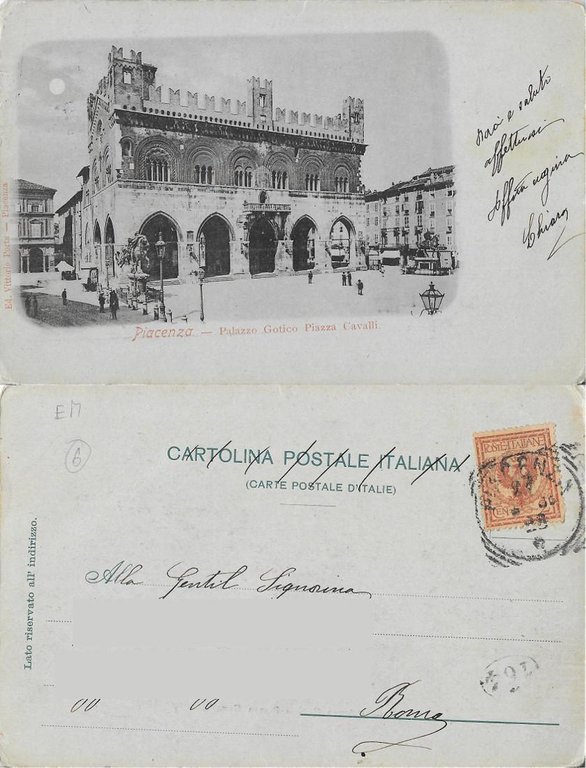 Baci e saluti
affettuosi
Aff.ma cugina
Chiara
Ed. Vittorio Porta - Piacenza
Piacenza — Palazzo Gotico Piazza Cavalli.
EM
6
CARTOLINA POSTALE ITALIANA
(CARTE POSTALE D'ITALIE)
POSTE ITALIANE
Lato riservato all' indirizzo.
Alla Gentil Signorina
Roma